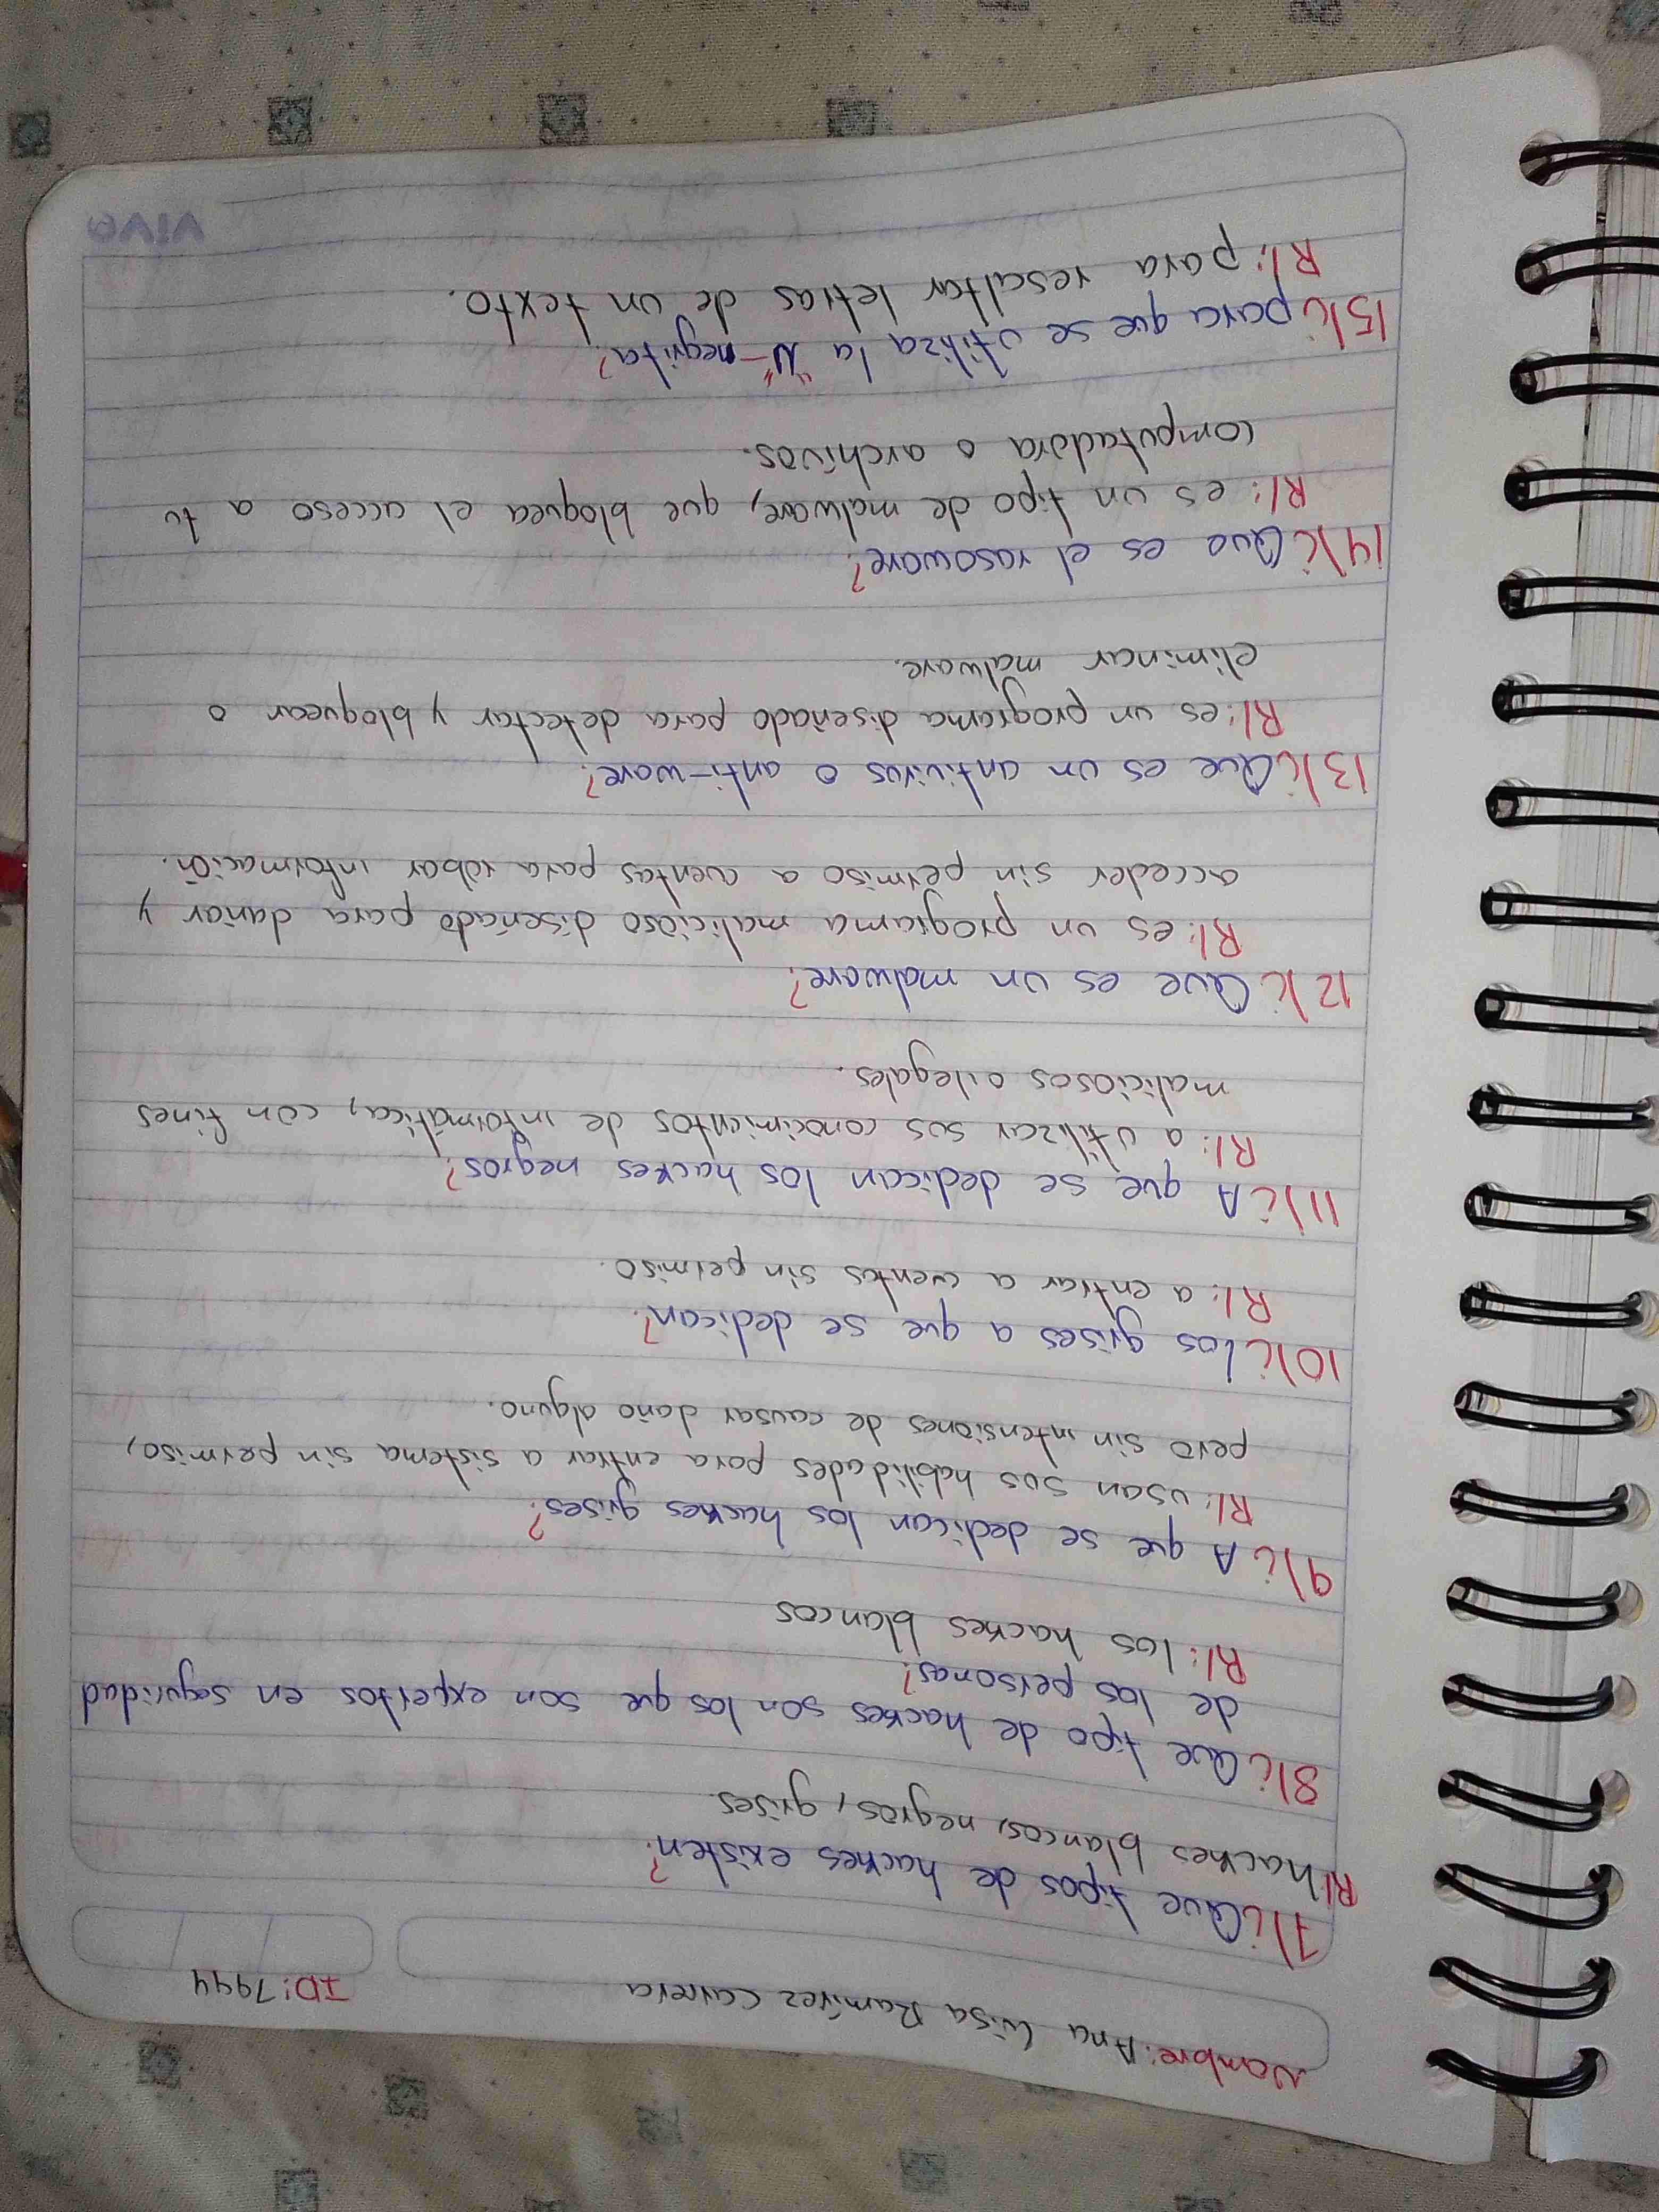 Nombre: Ana Luisa Ramírez Carrera ID: 7944
7) ¿Que tipos de hackes existen?
R/ hackes blancos, negros, grises.
8) ¿Que tipo de hackes son los que son expertos en seguridad
de las personas?
R/: los hackes blancos
9) ¿A que se dedican los hackes grises?
R/: usan sus habilidades para entrar a sistema sin permiso,
pero sin intensiones de causar daño alguno.
10) ¿Los grises a que se dedican?
R/: a entrar a cuentas sin permiso.
11) ¿A que se dedican los hackes negros?
R/: a utilizar sus conocimientos de informática, con fines
maliciosos o ilegales.
12) ¿Que es un malware?
R/: es un programa malicioso diseñado para dañar y
acceder sin permiso a cuentas para robar información.
13) ¿Que es un antivirus o anti-ware?
R/: es un programa diseñado para detectar y bloquear o
eliminar malware.
14) ¿Que es el rasoware?
R/: es un tipo de malware, que bloquea el acceso a tu
computadora o archivos.
15) ¿para que se utiliza la "N"-negrita?
R/: para resaltar letras de un texto.
VIVA